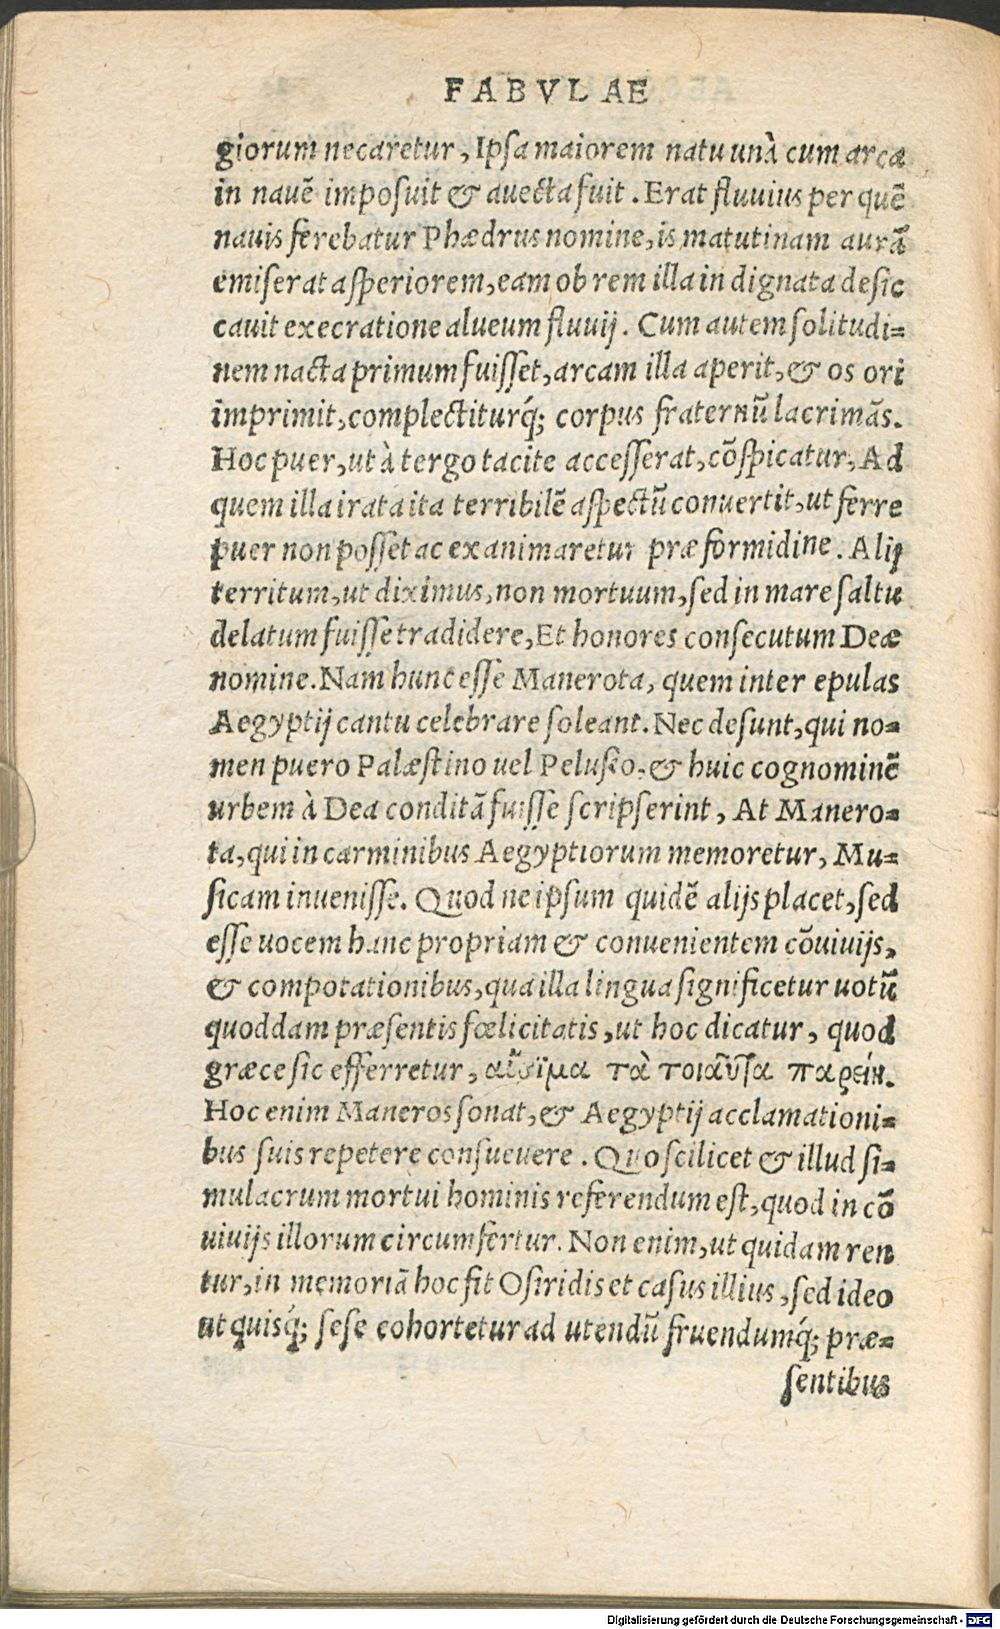 FABVLAE
giorum necaretur, Ipsa maiorem natu unà cum arca
in navẽ imposuit & auecta fuit. Erat fluuius per quẽ
nauis ferebatur Phædrus nomine, is matutinam aurã
emiserat asperiorem, eam ob rem illa in dignata desic
cauit execratione alueum fluuij. Cum autem solitudi=
nem nacta primum fuisset, arcam illa aperit, & os ori
imprimit, complectiturq́; corpus fraternũ lacrimãs.
Hoc puer, ut à tergo tacite accesserat, cõspicatur, Ad
quem illa irata ita terribilẽ aspectũ conuertit, ut ferre
puer non posset ac exanimaretur præ formidine. Alij
territum, ut diximus, non mortuum, sed in mare saltu
delatum fuisse tradidere, Et honores consecutum Deæ
nomine. Nam hunc esse Manerota, quem inter epulas
Aegyptij cantu celebrare soleant. Nec desunt, qui no=
men puero Palæstino uel Pelusio, & huic cognominẽ
urbem à Dea conditã fuisse scripserint, At Manero=
ta, qui in carminibus Aegyptiorum memoretur, Mu=
sicam inuenisse. Quod ne ipsum quidẽ alijs placet, sed
esse uocem hanc propriam & conuenientem cõuiuijs,
& compotationibus, qua illa lingua significetur uotũ
quoddam præsentis fœlicitatis, ut hoc dicatur, quod
græce sic efferretur, τὰ τοιαῦτα παρείη.
Hoc enim Maneros sonat, & Aegyptij acclamationi=
bus suis repetere consueuere. Quo scilicet & illud si=
mulacrum mortui hominis referendum est, quod in cõ
uiuijs illorum circumfertur. Non enim, ut quidam ren
tur, in memoriã hoc fit Osiridis et casus illius, sed ideo
ut quisq́; sese cohortetur ad utendũ fruendumq́; præ=
sentibus
Digitalisierung gefördert durch die Deutsche Forschungsgemeinschaft - DFG